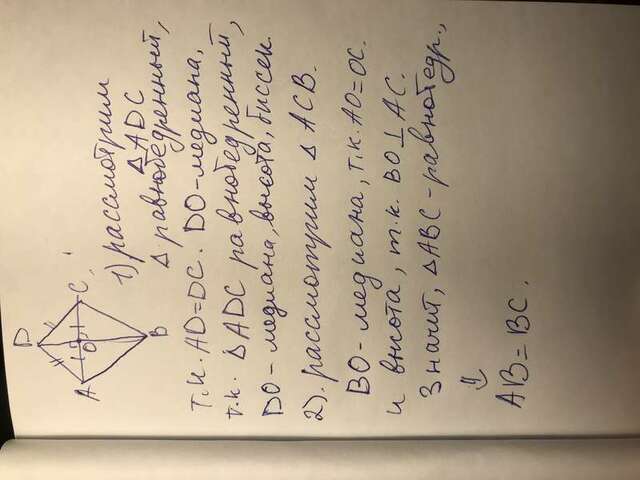 D
A
O
C
B
1) рассмотрим
△ADC
△ равнобедренный,
т.к. AD=DC. DO-медиана,
т.к. △ADC равнобедренный,
DO - медиана, высота, биссек.
2). рассмотрим △ ACB.
BO- медиана, т.к. AO=OC.
и высота, т.к. BO⊥AC.
Значит, △ABC-равнобедр.,
⇓
AB=BC.